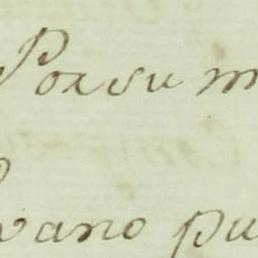 Por su m
vano pu